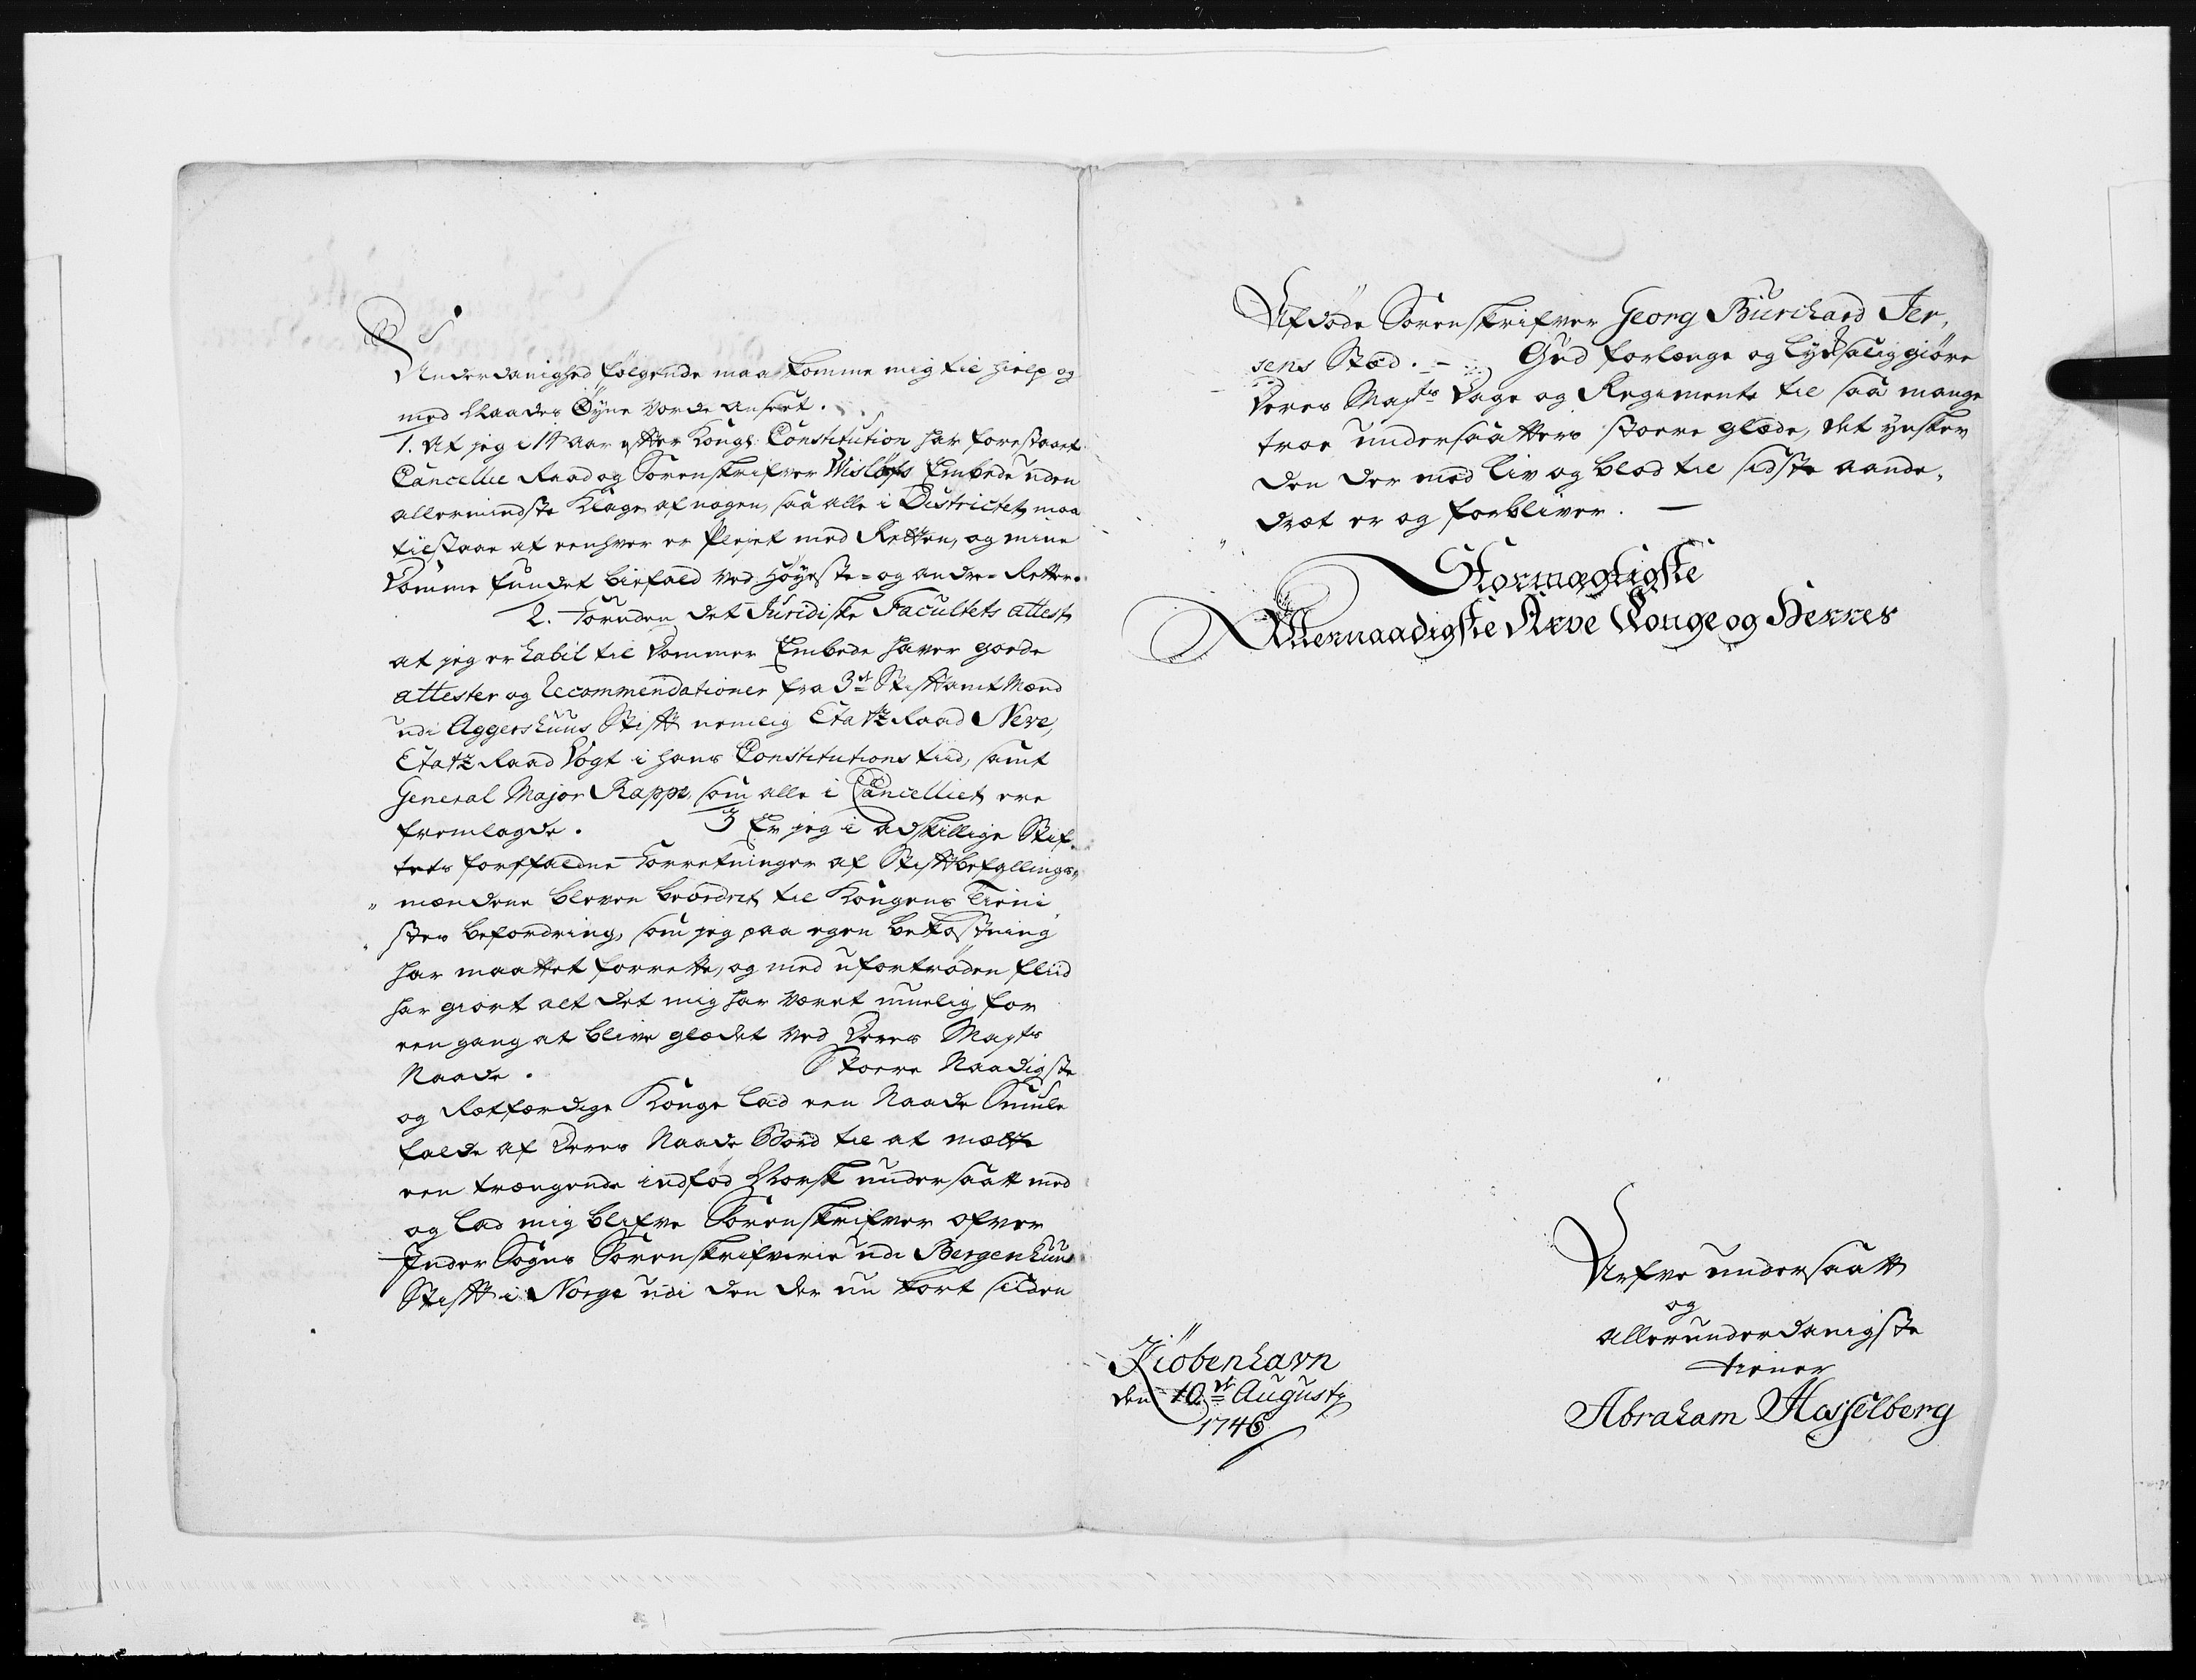 Underdanighed følgende maa komme mig til hielp og
med Naades Øyne vorde anseet.
1. At jeg i 14 aar efter Kongl: Constitution har forestaaet
Cancellie Raad og Sorenskrifver Wisløfs Embede uden
allermindste Klage af nogen, saa alle i Districtet maa
tilstaae at eenhver er Plejet med Retten, og mine
Domme fundet biefald ved Høyeste- og andre- Retter.
2. Foruden det Juridiske Facultets attest
at jeg er habil til Dommer Embede haver goede
attester og Recommendationer fra 3de Stiftamtmænd
udi Aggershuus Stift nemlig Etatz Raad Neve,
Etatz Raad Vogt i hans Constitutions tiid, samt
General Major Rappe, som alle i Cancelliet ere
fremlagde. 3 Er jeg i adskillige Stif-
tets forffaldne Forretninger af Stiftbefallings-
mændene bleven beordret til Kongens Tieni
stes befordring, som jeg paa egen bekostning
har maattet forrette, og med ufortrøden fliid
har giort alt det mig har været muelig for
een gang at blive glædet ved Deres Maj:ts
Naade. Stoere Naadigste
og Retfærdige Konge lad een Naade Smule
falde af Deres Naade Bord til at mætte
een trængende indfød Norsk undersaatt med
og lad mig blifve Sorenskrifver ofver
Inder Sogns Sorenskrifverie udi Bergenhuus
Stift i Norge udi den der nu kort siiden
Afdøde Sorenskrifver Georg Burchard Jer,
sens Stæd. - Gud forlænge og lyksaliggiøre
Deres Maj:ts Dage og Regimente til saa mange
troe undersaatters stoere glæde, det ynsker
den der med Liv og blod til sidste aande-
dræt er og forbliver. —
Stormægtigste
Allernaadigste Arve Konge og Herres
Kiøbenhavn
den 10de Augusty
1746
Arfve undersaatt
og
allerunderdanigste
tiener
Abraham Hasselberg